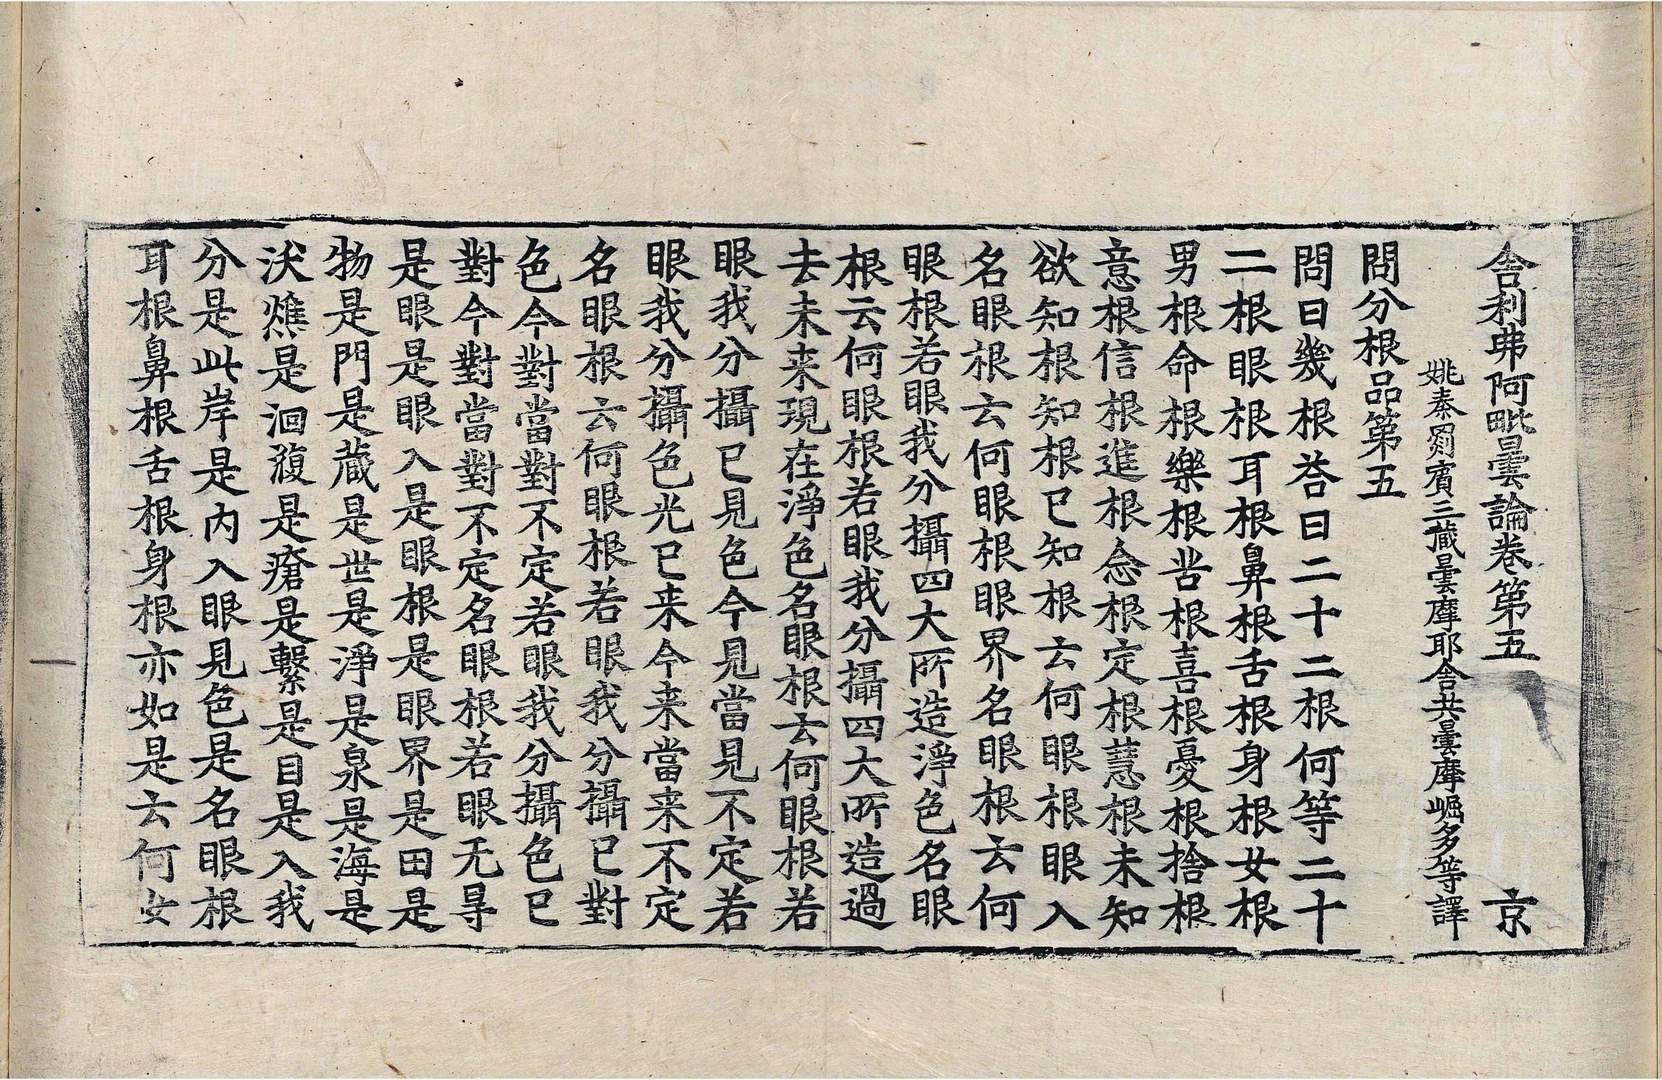 舎利弗阿毗曇論卷第五 京
姚秦罽賓三藏曇摩耶舎共曇摩崛多等譯
問分根品第五
問曰幾根荅曰二十二根何等二十
二根眼根耳根鼻根舌根身根女根
男根命根樂根苦根喜根憂根捨根
意根信根進根念根定根慧根未知
欲知根知根已知根云何眼根眼入
名眼根云何眼根眼界名眼根云何
眼根若眼我分攝四大所造淨色名眼
根云何眼根若眼我分攝四大所造過
去未来現在淨色名眼根云何眼根若
眼我分攝已見色今見當見不定若
眼我分攝色光已来今来當来不定
名眼根云何眼根若眼我分攝已對
色今對當對不定若眼我分攝色已
對今對當對不定名眼根若眼无㝵
是眼是眼入是眼根是眼界是田是
物是門是藏是世是淨是泉是海是
沃燋是洄澓是瘡是繫是目是入我
分是此岸是内入眼見色是名眼根
耳根鼻根舌根身根亦如是云何女